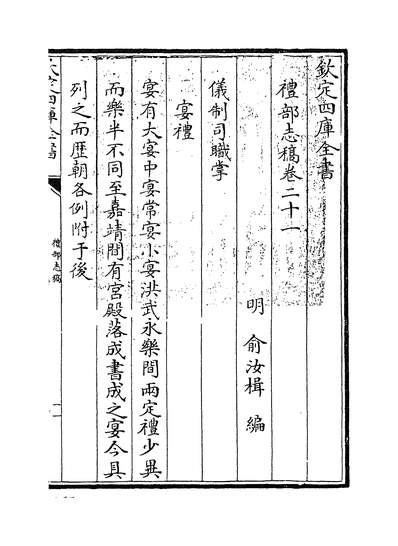 欽定四庫全書
禮部志稿卷二十一
明 俞汝楫 編
儀制司職掌
宴禮
宴有大宴中宴常宴小宴洪武永樂間兩定禮少異
而樂半不同至嘉靖間有宮殿落成書成之宴今具
列之而歴朝各例附于後
欽定四庫全書
禮部志稿